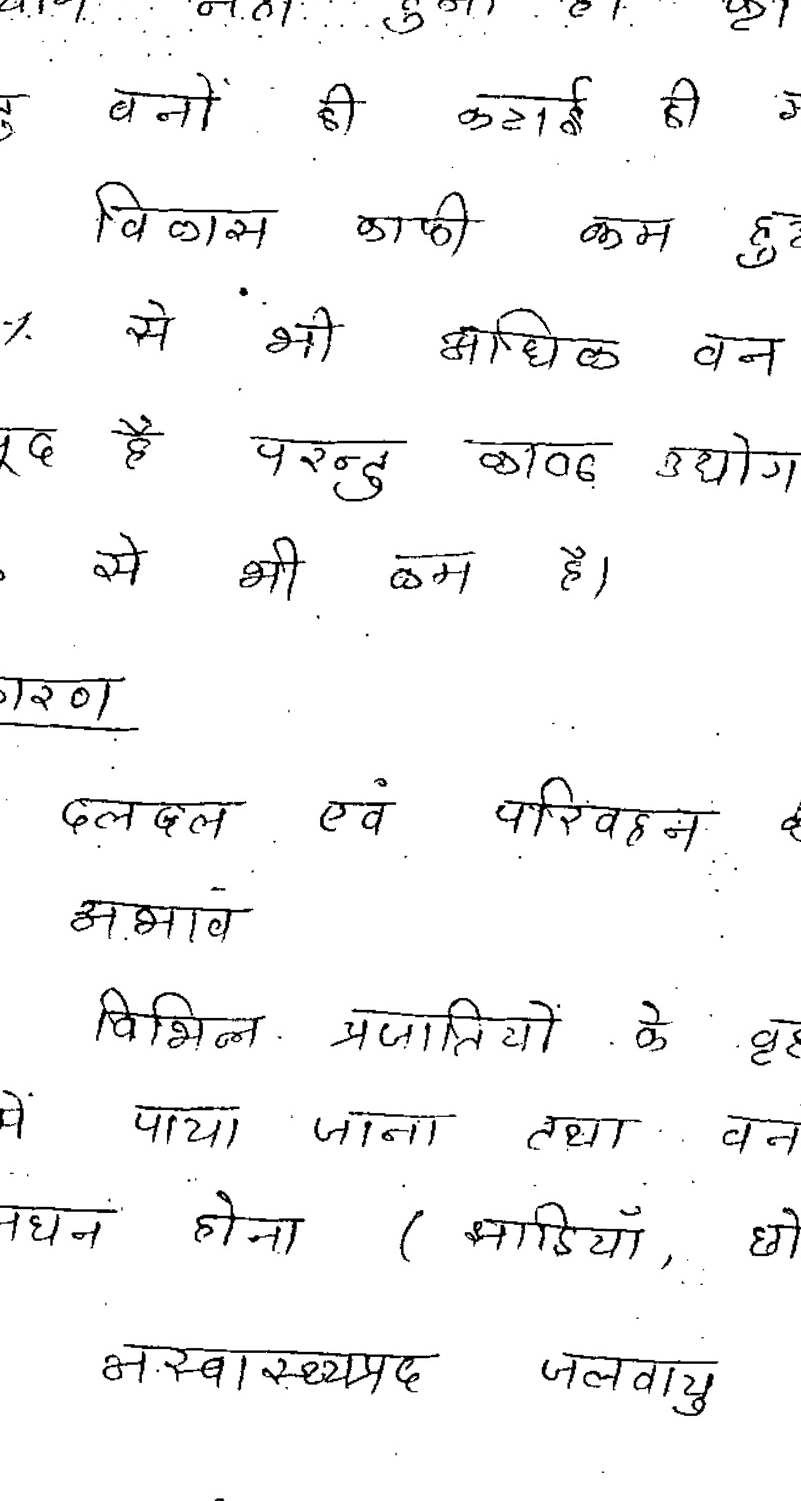 नहीं हुआ है।
वनों की कटाई की
विकास काफी कम हुआ
% से भी अधिक वन
है परन्तु काष्ठ उद्योग
से भी कम है।
कारण
दलदल एवं परिवहन
अभाव
विभिन्न प्रजातियों के
में पाया जाना तथा वन
सघन होना ( झाडियाँ,
अस्वास्थ्यप्रद जलवायु